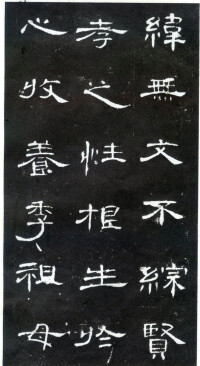 緯無文不綜賢
孝之性根生於
心收養季〻祖母